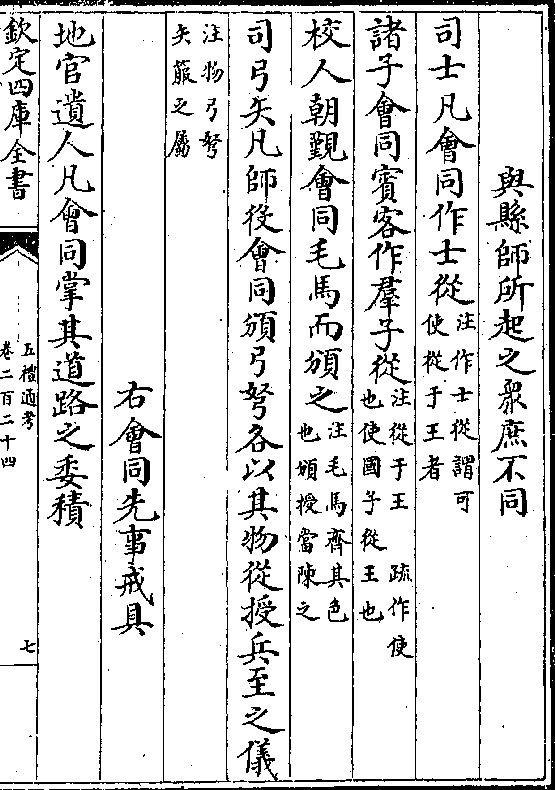 與縣師所起之衆庶不同
司士凡會同作士從注作士從謂可使從于王者
諸子會同賓客作羣子從注從于王 疏作使也使國子從王也
校人朝覲會同毛馬而頒之注毛馬齊其色也頒授當陳之
司弓矢凡師役會同頒弓弩各以其物從授兵至之儀
注物弓弩矢箙之屬
右會同先事戒具
地官遺人凡會同掌其道路之委積
欽定四庫全書
五禮通考
卷二百二十四
七